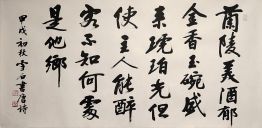 蘭陵美酒郁
金香玉碗盛
來琥珀光但
使主人能醉
客不知何處
是他鄉
甲戌初秋雪石書唐詩